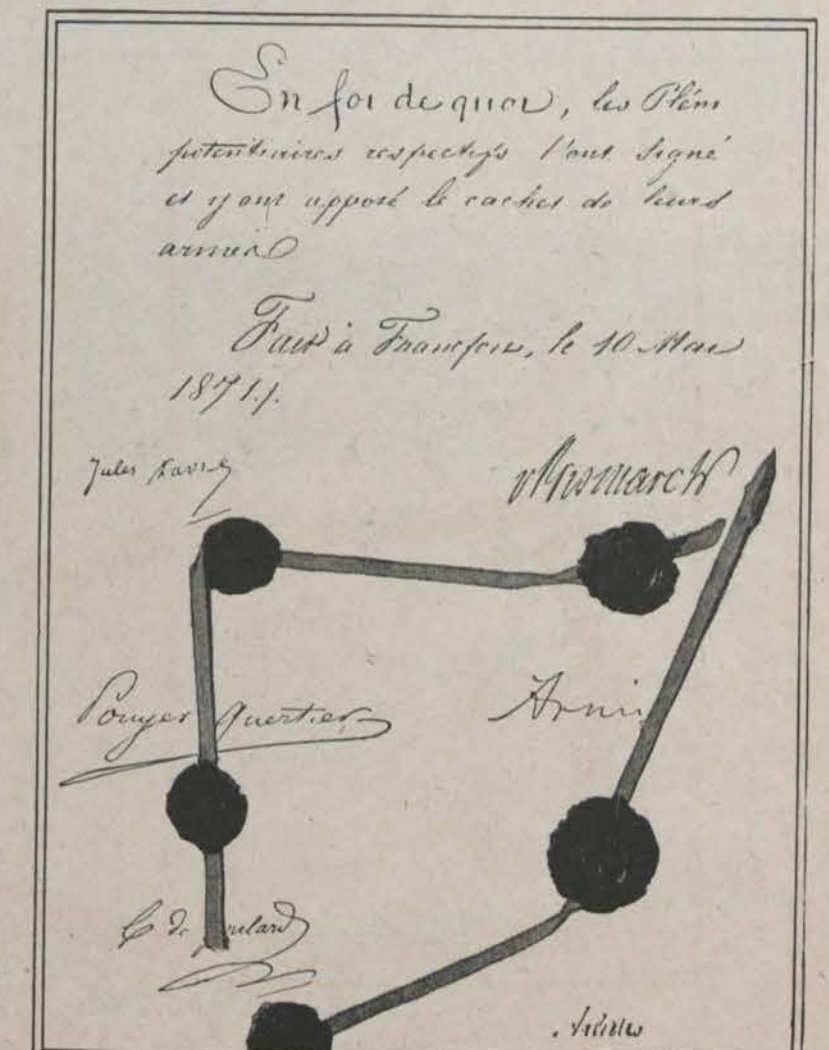 En foi de quoi, les Pléni
potentiaires respectifs l'ont signé
et y ont apposé le cachet de leurs
armes
Fait à Francfort, le 10 Mai
1871.
Jules Favre
v Bismarck
Pouyer Quertier
Arnim
de Goulard